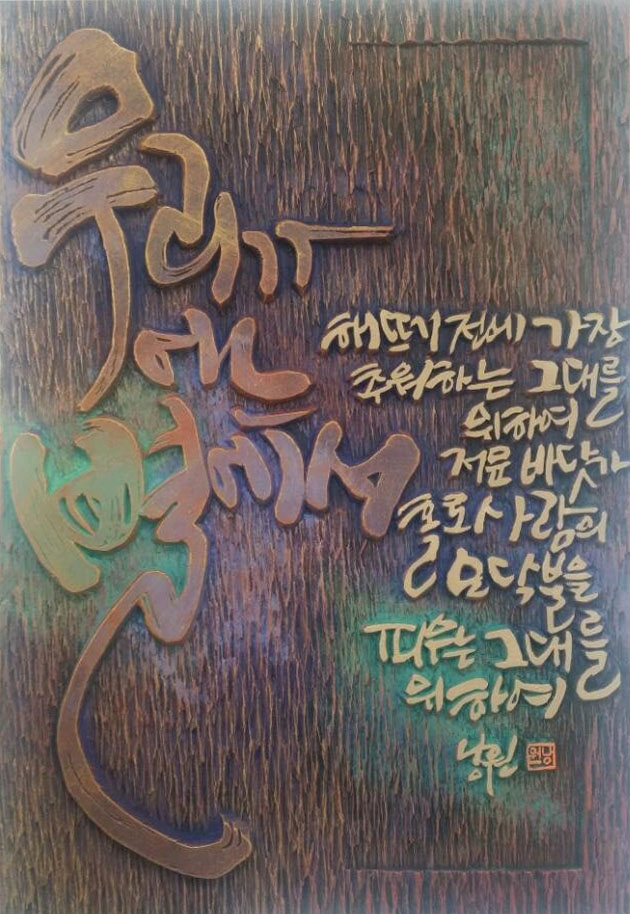 우리가
어느
별에서
해뜨기 전에 가장
추워하는 그대를
위하여
저문 바닷가
홀로 사람의
모닥불을
피우는 그대를
위하여
낭원